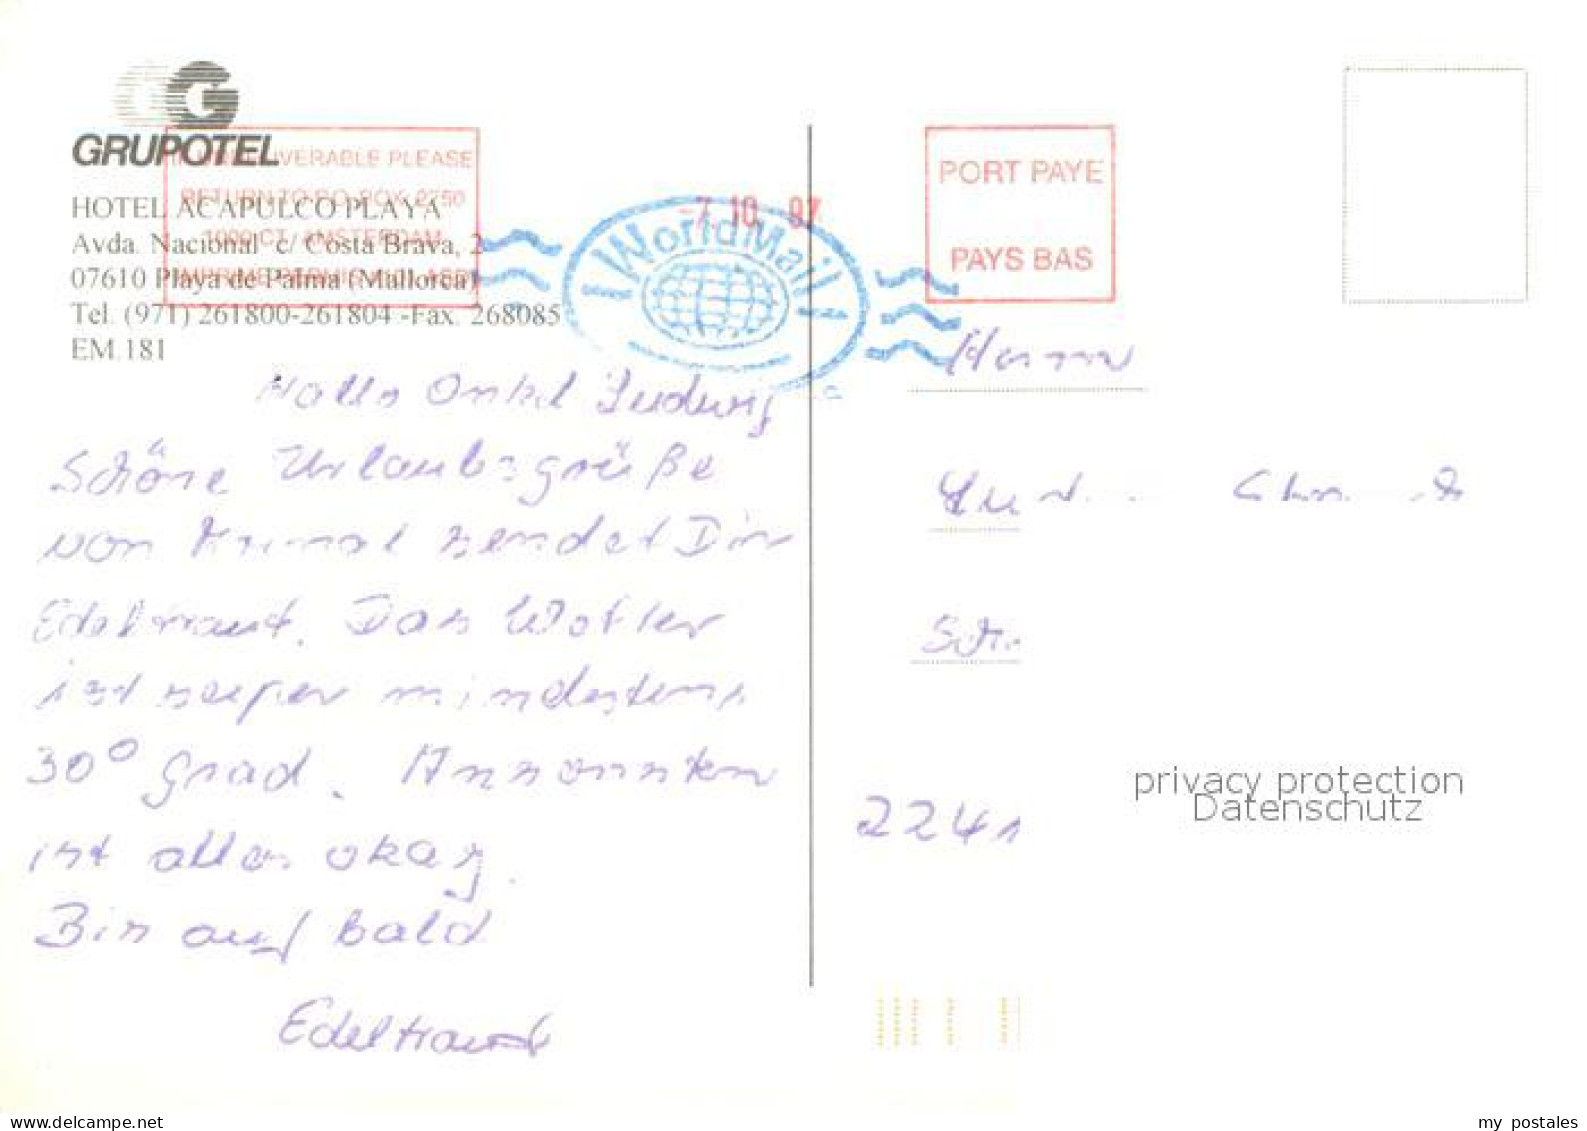 GRUPOTEL
UNDELIVERABLE PLEASE
RETURN TO P.O. BOX 2750
AMSTERDAM
HOTEL ACAPULCO PLAYA
Avda. Nacional c/ Costa Brava, 2
07610 Playa de Palma (Mallorca)
Tel. (971) 261800-261804 -Fax. 268085
EM.181
-7.10 97
WorldMail
PORT PAYE
PAYS BAS
Hallo Onkel Ludwig
Schöne Urlaubsgrüße
von sendet Dir
Edeltraut. Das Wetter
ist super mindestens
30° Grad. Ansonsten
ist alles okay.
Bis auf bald
Edeltraut
Herrn
2241
privacy protection
Datenschutz
www.delcampe.net
my_postales